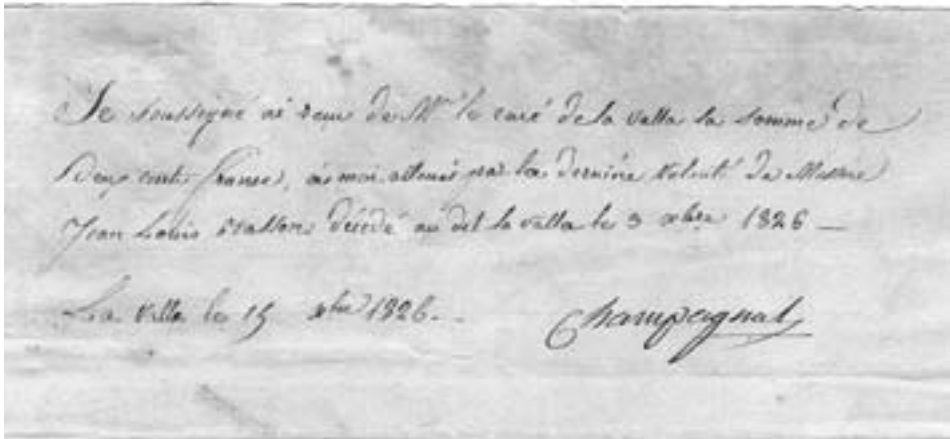 Je soussigné ai recu de Mr le curé de la valla la somme de
Deux cents francs, à moi alloués par la dernière volonté de Messire
Jean Louis decédé au dit la valla le 3 xbre 1826 —
La valla le 15 xbre 1826.
Champagnat